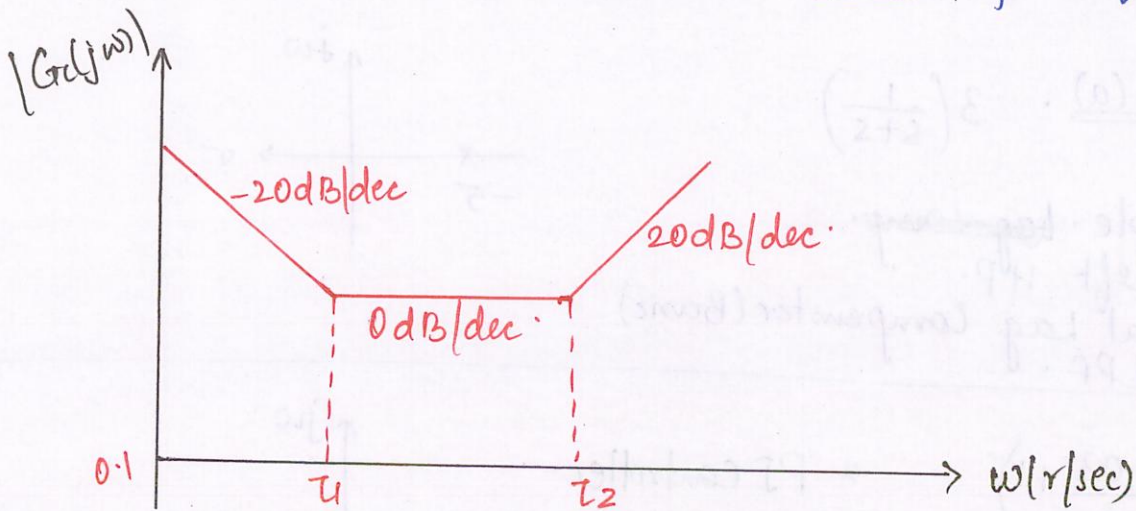 |Gc(jω)|
-20dB/dec
20dB/dec.
0dB/dec.
0.1
τ1
τ2
ω(r/sec)